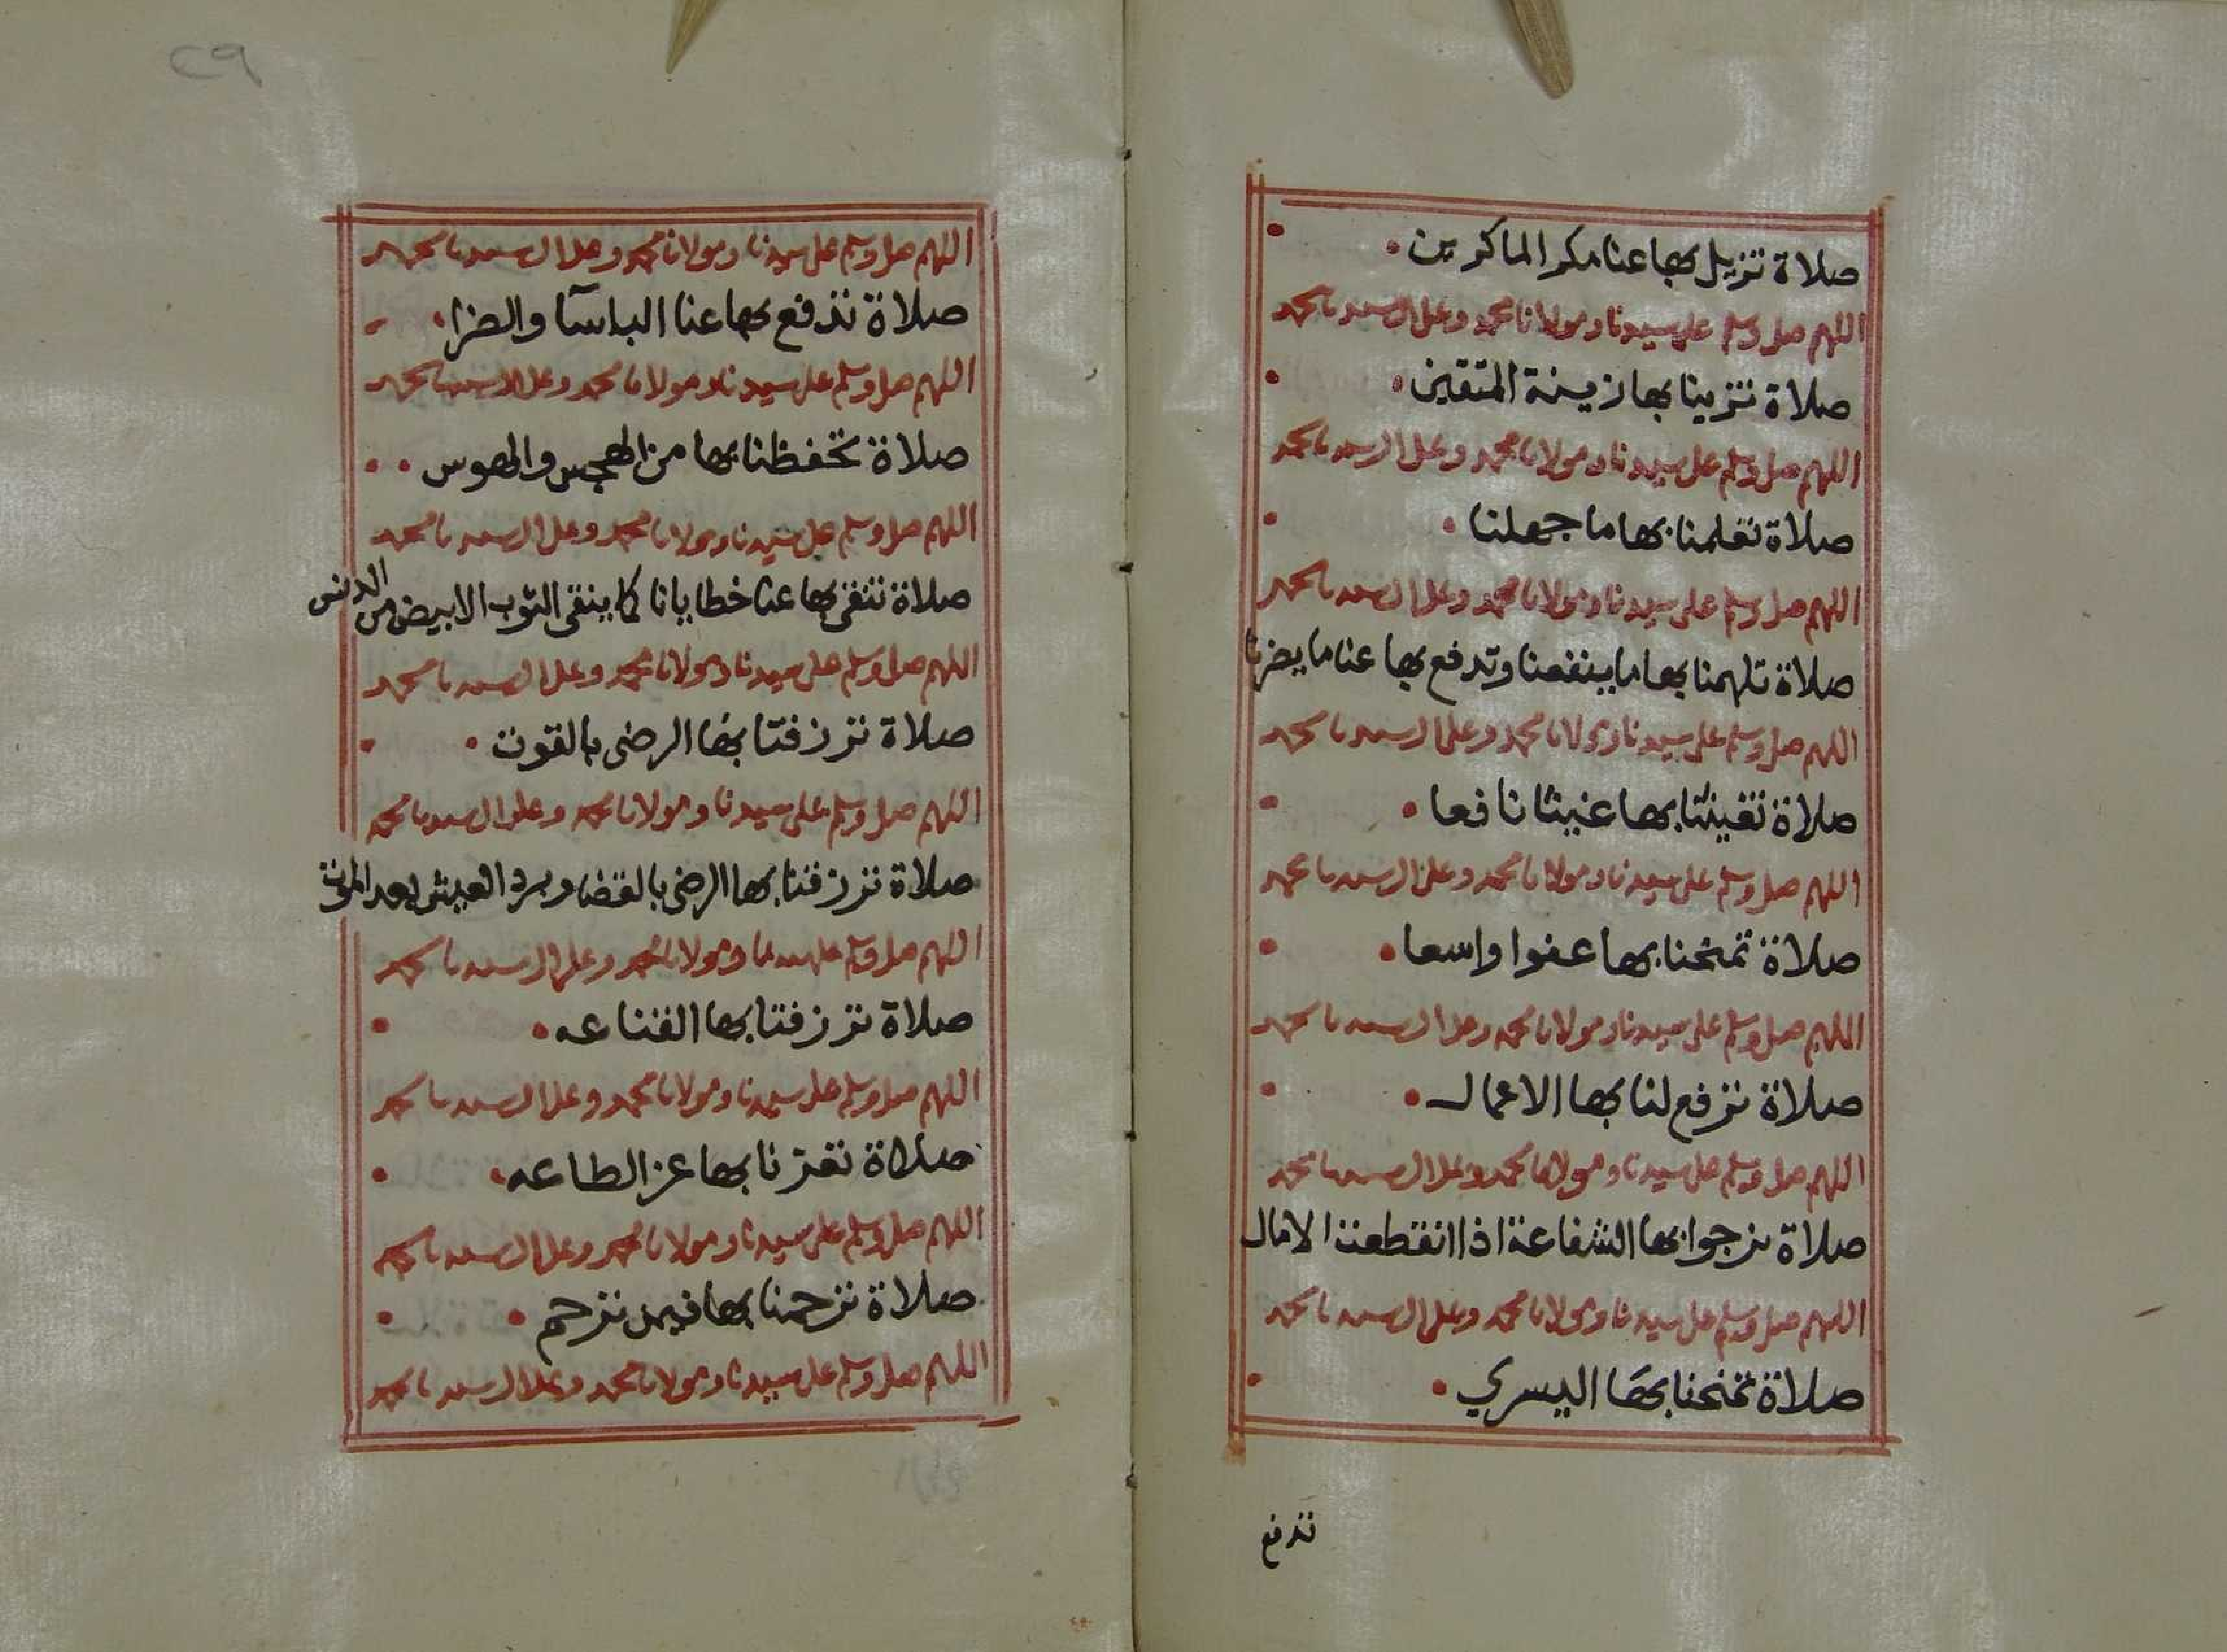 صلاة تزيل بها عنا مكر الماكرين
اللهم صل وسلم على سيدنا ومولانا محمد وعلى ال سيدنا محمد
صلاة تزينا بها زينة المتقين
اللهم صل وسلم على سيدنا ومولانا محمد وعلى ال سيدنا محمد
صلاة تعلمنا بها ما جهلنا
اللهم صل وسلم على سيدنا ومولانا محمد وعلى ال سيدنا محمد
صلاة تلهمنا بها ما ينفعنا وتدفع بها عنا ما يضرنا
اللهم صل وسلم على سيدنا ومولانا محمد وعلى ال سيدنا محمد
صلاة تغيثنا بها غيثا نافعا
اللهم صل وسلم على سيدنا ومولانا محمد وعلى ال سيدنا محمد
صلاة تمنحنا بها عفوا واسعا
اللهم صل وسلم على سيدنا ومولانا محمد وعلى ال سيدنا محمد
صلاة ترفع لنا بها الاعمال
اللهم صل وسلم على سيدنا ومولانا محمد وعلى ال سيدنا محمد
صلاة نرجوا بها الشفاعة اذا انقطعت الامال
اللهم صل وسلم على سيدنا ومولانا محمد وعلى ال سيدنا محمد
صلاة تمنحنا بها اليسري
تدفع
٢٩
اللهم صل وسلم على سيدنا ومولانا محمد وعلى ال سيدنا محمد
صلاة تدفع بها عنا الباسآ والضرا
اللهم صل وسلم على سيدنا ومولانا محمد وعلى ال سيدنا محمد
صلاة تحفظنا بها من الهجس والهوس
اللهم صل وسلم على سيدنا ومولانا محمد وعلى ال سيدنا محمد
صلاة تنقي بها عنا خطايانا كما ينقى الثوب الابيض من الدنس
اللهم صل وسلم على سيدنا ومولانا محمد وعلى ال سيدنا محمد
صلاة ترزقنا بها الرضى بالقوت
اللهم صل وسلم على سيدنا ومولانا محمد وعلى ال سيدنا محمد
صلاة ترزقنا بها الرضى بالقضا وبرد العيش بعد الموت
اللهم صل وسلم على سيدنا ومولانا محمد وعلى ال سيدنا محمد
صلاة ترزقنا بها القناعه
اللهم صل وسلم على سيدنا ومولانا محمد وعلى ال سيدنا محمد
صلاة تعزنا بها عز الطاعه
اللهم صل وسلم على سيدنا ومولانا محمد وعلى ال سيدنا محمد
صلاة ترحمنا بها فيمن ترحم
اللهم صل وسلم على سيدنا ومولانا محمد وعلى ال سيدنا محمد